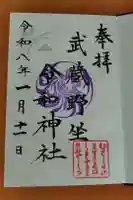 奉拝
武蔵野坐
令和神社
令和八年一月十一日